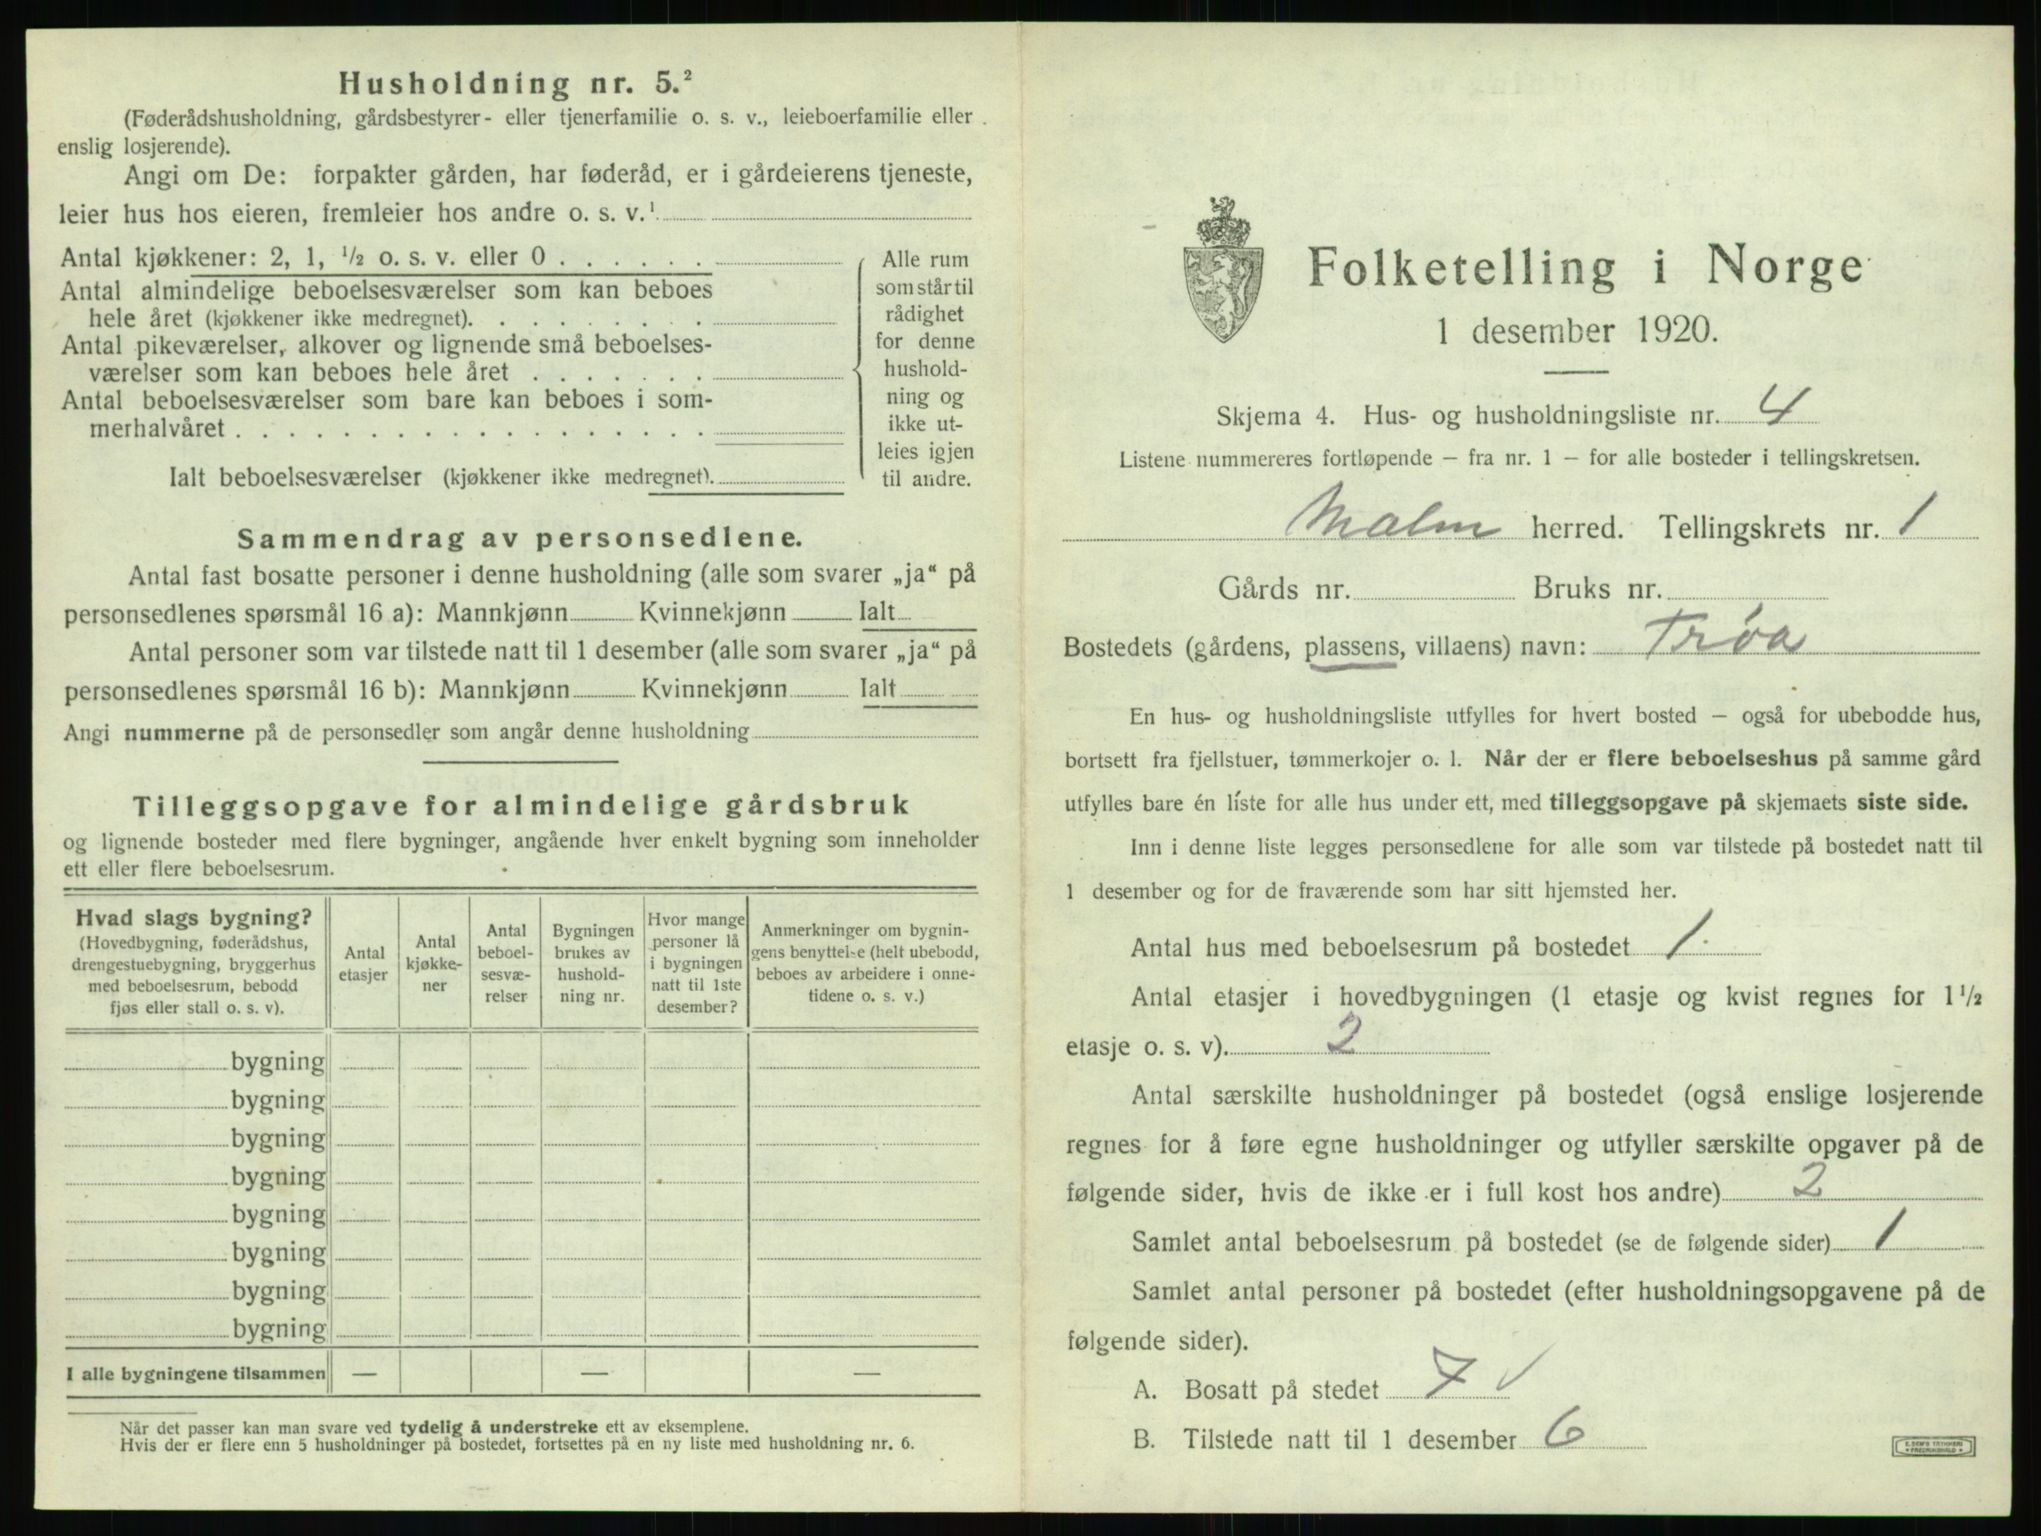 Husholdning nr. 5.²
(Føderådshusholdning, gårdsbestyrer- eller tjenerfamilie o. s. v., leieboerfamilie eller
enslig losjerende).
Angi om De: forpakter gården, har føderåd, er i gårdeierens tjeneste,
leier hus hos eieren, fremleier hos andre o. s. v.¹
Antal kjøkkener: 2, 1, ½ o. s. v. eller 0 . . . . . .
Antal almindelige beboelsesværelser som kan beboes
hele året (kjøkkener ikke medregnet). . . . . . . . .
Antal pikeværelser, alkover og lignende små beboelses-
værelser som kan beboes hele året . . . . . . .
Antal beboelsesværelser som bare kan beboes i som-
merhalvåret . . . . . . . . . . . . . . . . . .
Ialt beboelsesværelser (kjøkkener ikke medregnet).
Alle rum
som står til
rådighet
for denne
hushold-
ning og
ikke ut-
leies igjen
til andre.
Sammendrag av personsedlene.
Antal fast bosatte personer i denne husholdning (alle som svarer „ja“ på
personsedlenes spørsmål 16 a): Mannkjønn Kvinnekjønn Ialt
Antal personer som var tilstede natt til 1 desember (alle som svarer „ja“ på
personsedlenes spørsmål 16 b): Mannkjønn Kvinnekjønn Ialt
Angi nummerne på de personsedler som angår denne husholdning
Tilleggsopgave for almindelige gårdsbruk
og lignende bosteder med flere bygninger, angående hver enkelt bygning som inneholder
ett eller flere beboelsesrum.
Hvad slags bygning?
(Hovedbygning, føderådshus,
drengestuebygning, bryggerhus
med beboelsesrum, bebodd
fjøs eller stall o. s. v).
Antal
etasjer
Antal
kjøkke-
ner
Antal
beboel-
sesvæ-
relser
Bygningen
brukes av
hushold-
ning nr.
Hvor mange
personer lå
i bygningen
natt til 1ste
desember?
Anmerkninger om bygnin-
gens benyttelse (helt ubebodd,
beboes av arbeidere i onne-
tidene o. s. v.)
bygning
bygning
bygning
bygning
bygning
bygning
bygning
bygning
I alle bygningene tilsammen — — —
Når det passer kan man svare ved tydelig å understreke ett av eksemplene.
Hvis der er flere enn 5 husholdninger på bostedet, fortsettes på en ny liste med husholdning nr. 6.
Folketelling i Norge
1 desember 1920.
Skjema 4. Hus- og husholdningsliste nr. 4
Listene nummereres fortløpende – fra nr. 1 – for alle bosteder i tellingskretsen.
Malm herred. Tellingskrets nr. 1
Gårds nr. Bruks nr.
Bostedets (gårdens, plassens, villaens) navn: Trøa
En hus- og husholdningsliste utfylles for hvert bosted – også for ubebodde hus,
bortsett fra fjellstuer, tømmerkojer o. l. Når der er flere beboelseshus på samme gård
utfylles bare én liste for alle hus under ett, med tilleggsopgave på skjemaets siste side.
Inn i denne liste legges personsedlene for alle som var tilstede på bostedet natt til
1 desember og for de fraværende som har sitt hjemsted her.
Antal hus med beboelsesrum på bostedet 1.
Antal etasjer i hovedbygningen (1 etasje og kvist regnes for 1½
etasje o. s. v). 2
Antal særskilte husholdninger på bostedet (også enslige losjerende
regnes for å føre egne husholdninger og utfyller særskilte opgaver på de
følgende sider, hvis de ikke er i full kost hos andre) 2
Samlet antal beboelsesrum på bostedet (se de følgende sider) 1
Samlet antal personer på bostedet (efter husholdningsopgavene på de
følgende sider).
A. Bosatt på stedet 7 ✓
B. Tilstede natt til 1 desember 6